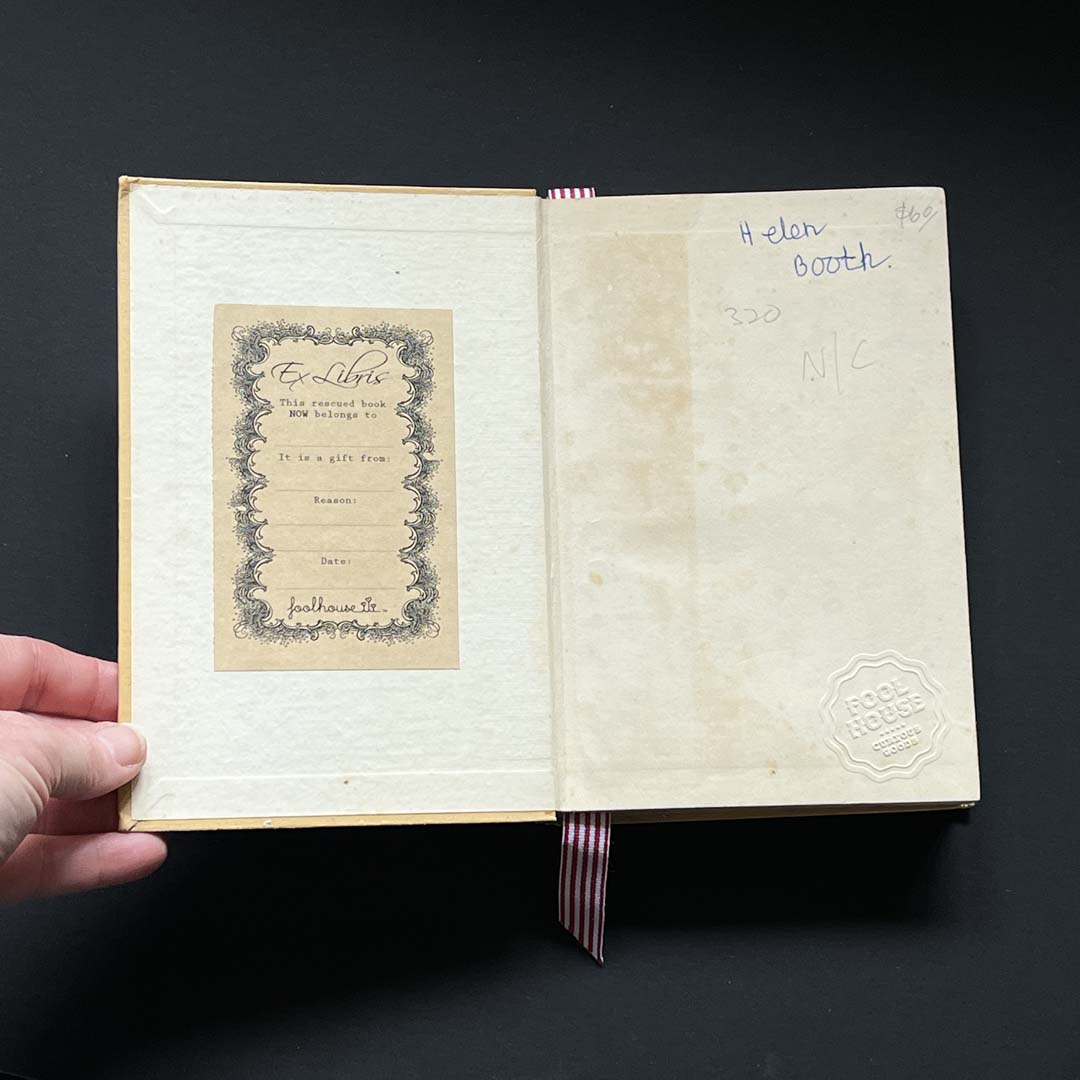 Ex Libris
This rescued book
NOW belongs to
It is a gift from:
Reason:
Date:
foolhouse
Helen
Booth.
320
N/C
FOOL
HOUSE
CURIOUS
GOODS